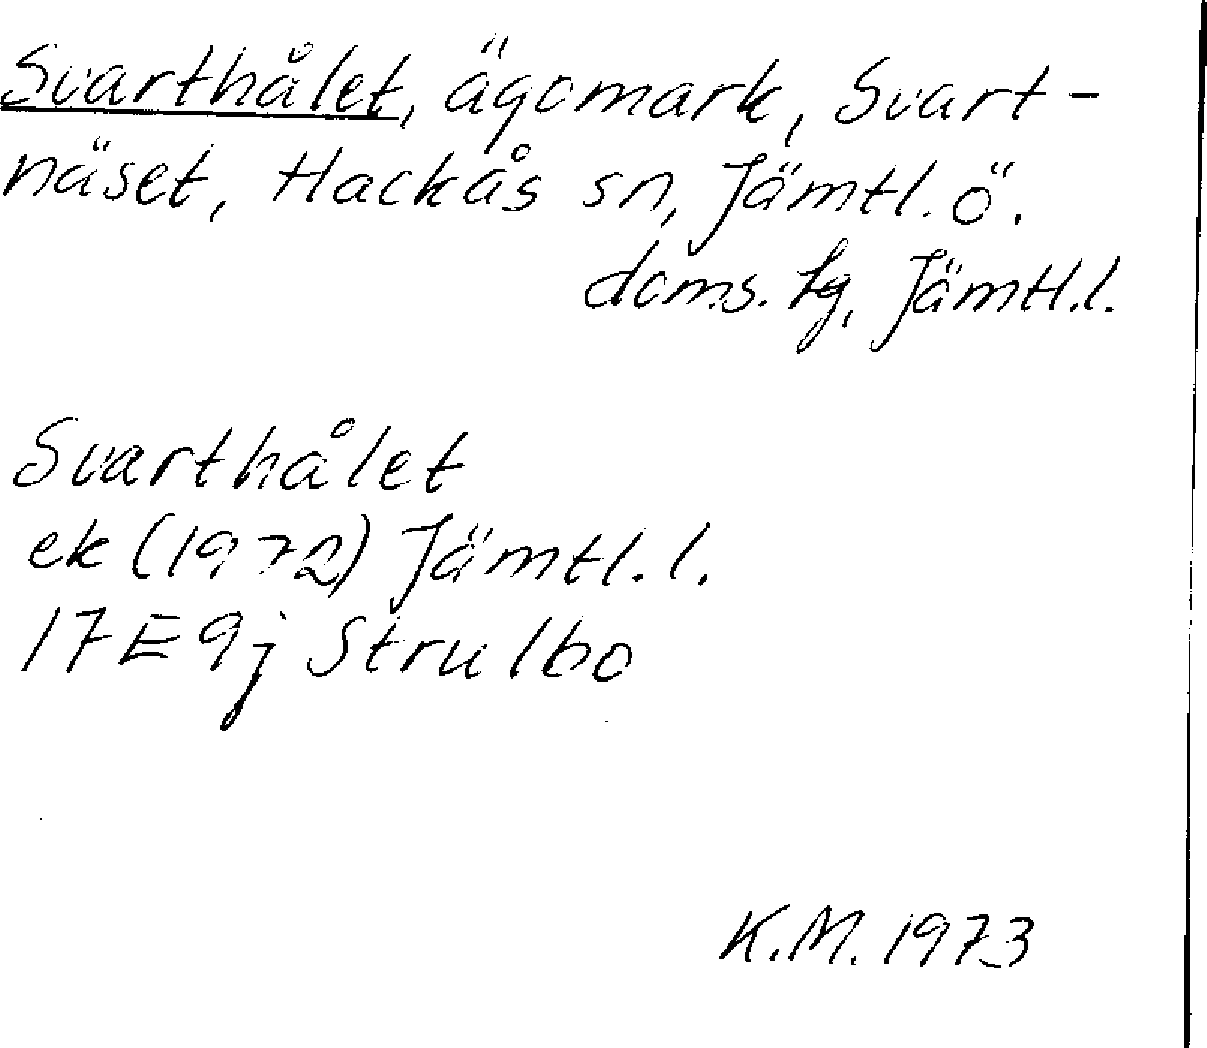 Svarthålet, ägomark, Svart-
näset, Hackås sn, Jämtl. ö.
doms. tg, Jämtl.l.
Svarthålet
ek (1972) Jämtl. l.
17E9j Strulbo
K.M. 1973